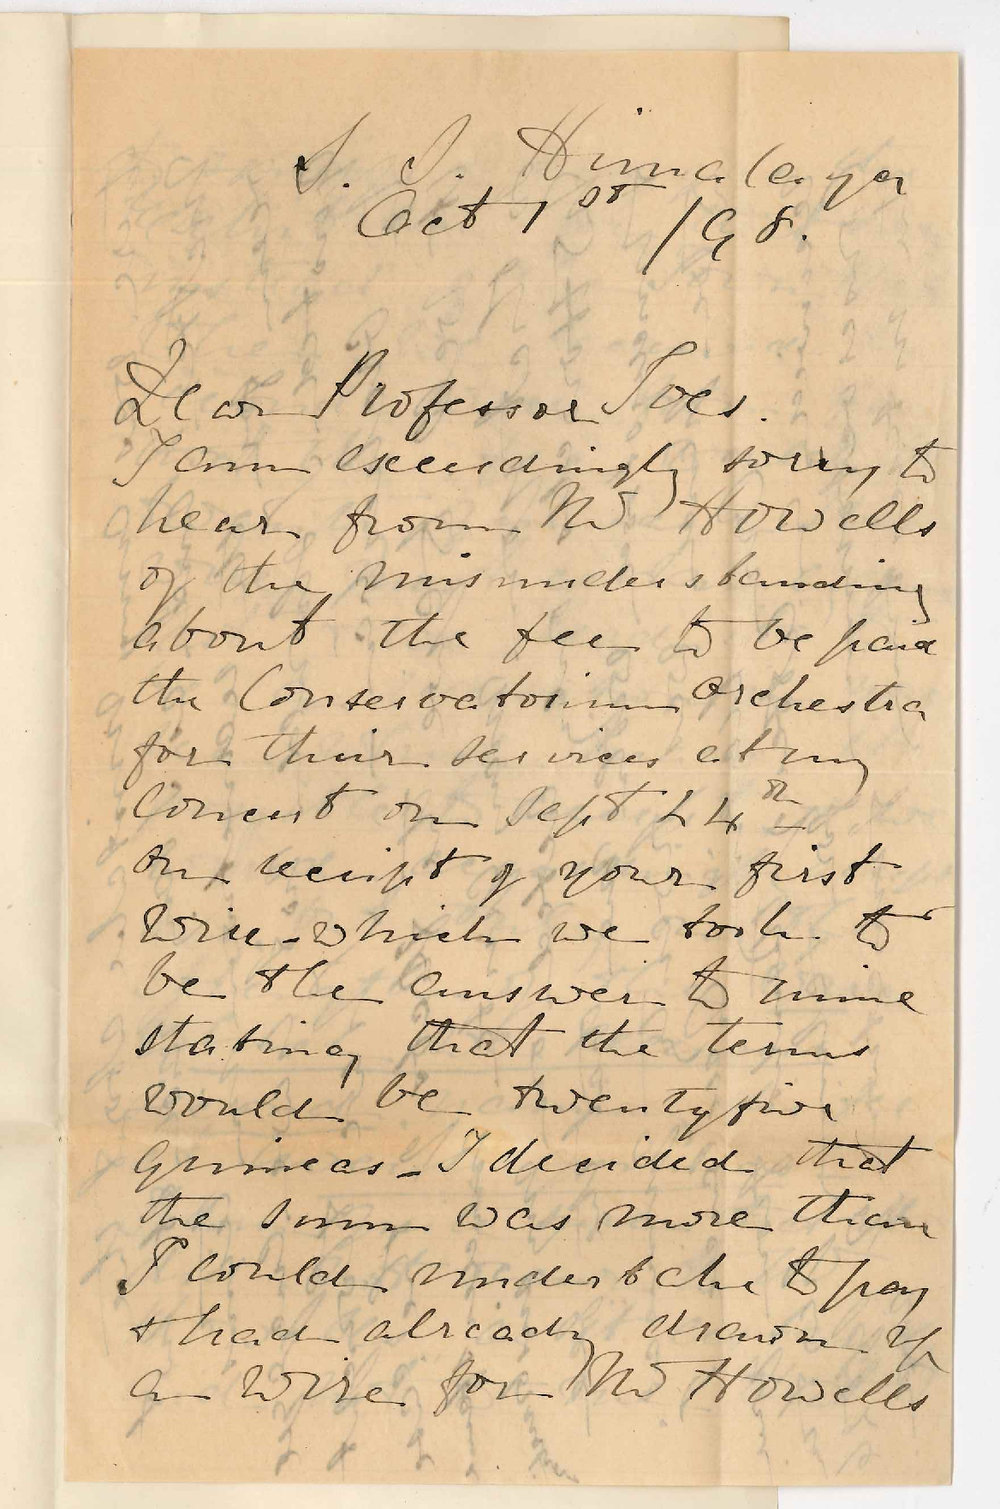 S. S. Himalaya
Oct 1st /98.
Dear Professor Ives.
I am exceedingly sorry to
hear from Mr Howells
of the misunderstanding
about the fee to be paid
the Conservatorium Orchestra
for their services at my
Concert on Sept 24th
On receipt of your first
wire - which we took to
be the answer to mine
stating that the terms
would be twenty five
guineas - I decided that
the sum was more than
I could undertake to pay
& had already drawn up
a wire for Mr Howells